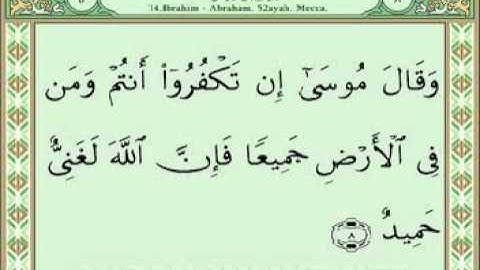 14.Ibrahim - Abraham, 52ayah, Mecca.
وَقَالَ مُوسَىٰٓ إِن تَكْفُرُوٓا۟ أَنتُمْ وَمَن
فِى ٱلْأَرْضِ جَمِيعًا فَإِنَّ ٱللَّهَ لَغَنِىٌّ
حَمِيدٌ ٨